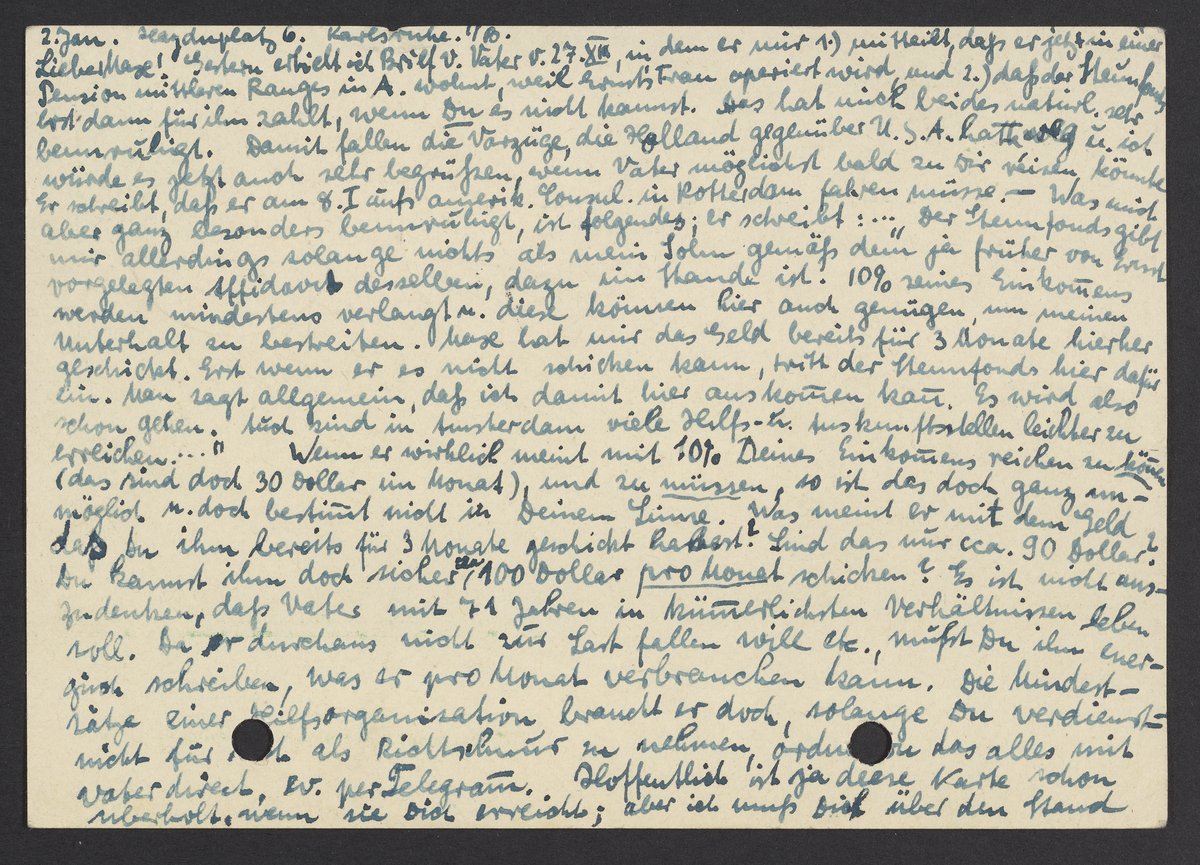 2. Jan. Haydnplatz 6. Karlsruhe. i/B.
Lieber Maxe! Gestern erhielt ich Brief v. Vater v. 27. XII, in dem er mir 1.) mitteilt, daß er jetzt in einer
Pension mittleren Ranges in A. wohnt, weil Ernsts Frau operiert wird, und 2.) daß der Steunfonds
erst dann für ihn zahlt, wenn Du es nicht kannst. Das hat mich beides natürl. sehr
beunruhigt. Damit fallen die Vorzüge, die Holland gegenüber U.S.A. hatte weg u. ich
würde es jetzt auch sehr begrüßen, wenn Vater möglichst bald zu Dir reisen könnte
Er schreibt, daß er am 8. I aufs amerik. Consul. in Rotterdam fahren müsse. – Was mich
aber ganz besonders beunruhigt, ist folgendes; er schreibt: „... Der Steunfonds gibt
mir allerdings solange nichts als mein Sohn gemäß dem ja früher von Ernst
vorgelegten Affidavit desselben, dazu im Stande ist. 10% seines Einkom̄ens
werden mindestens verlangt u. diese können hier auch genügen, um meinen
Unterhalt zu bestreiten. Maxe hat mir das Geld bereits für 3 Monate hierher
geschickt. Erst wenn er es nicht schicken kann, tritt der Steunfonds hier dafür
ein. Man sagt allgemein, daß ich damit hier auskom̄en kan̄. Es wird also
schon gehen. Auch sind in Amsterdam viele Hilfs- u. Auskunftsstellen leichter zu
erreichen...." Wenn er wirklich meint mit 10% Deines Einkom̄ens reichen zu kön̄en
(das sind doch 30 Dollar im Monat), und zu müssen, so ist das doch ganz un-
möglich u. doch bestim̄t nicht in Deinem Sinne. Was meint er mit dem Geld
daß Du ihm bereits für 3 Monate geschickt habest? Sind das nur cca. 90 Dollar?
Du kannst ihm doch sicher 100 Dollar pro Monat schicken? Es ist nicht aus-
zudenken, daß Vater mit 71 Jahren in küm̄erlichsten Verhältnissen leben
soll. Da er durchaus nicht zur Last fallen will etc., mußt Du ihm ener-
gisch schreiben, was er pro Monat verbrauchen kann. Die Mindest-
sätze einer Hilfsorganisation braucht er doch, solange Du verdienst
nicht für als Richtschnur zu nehmen, ordne das alles mit
Vater direct, ev. per Telegram̄. Hoffentlich ist ja diese Karte schon
überholt, wenn sie Dich erreicht; aber ich muß Dich über den Stand